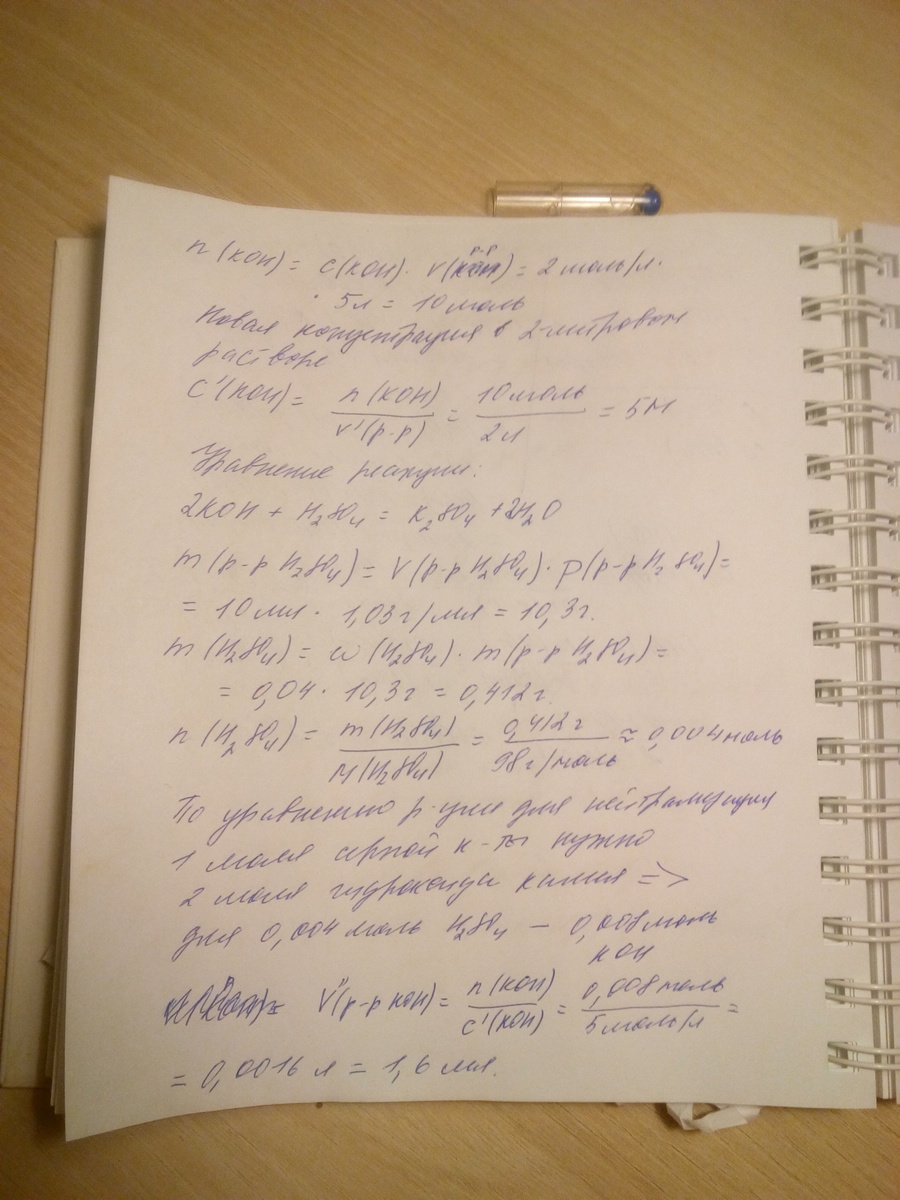 n(KOH) = c(KOH) · V(р-р) = 2 моль/л ·
· 5л = 10 моль
Новая концентрация в 2-литровом
растворе
C'(KOH) = n(KOH) / V'(р-р) = 10 моль / 2 л = 5М
Уравнение реакции:
2KOH + H₂SO₄ = K₂SO₄ + 2H₂O
m(р-р H₂SO₄) = V(р-р H₂SO₄) · ρ(р-р H₂SO₄) =
= 10 мл · 1,03 г/мл = 10,3 г.
m(H₂SO₄) = ω(H₂SO₄) · m(р-р H₂SO₄) =
= 0,04 · 10,3 г = 0,412 г.
n(H₂SO₄) = m(H₂SO₄) / M(H₂SO₄) = 0,412 г / 98 г/моль ≈ 0,004 моль
По уравнению р-ции для нейтрализации
1 моля серной к-ты нужно
2 моля гидроксида калия =>
для 0,004 моль H₂SO₄ – 0,008 моль
KOH
V''(р-р KOH) = n(KOH) / c'(KOH) = 0,008 моль / 5 моль/л =
= 0,0016 л = 1,6 мл.